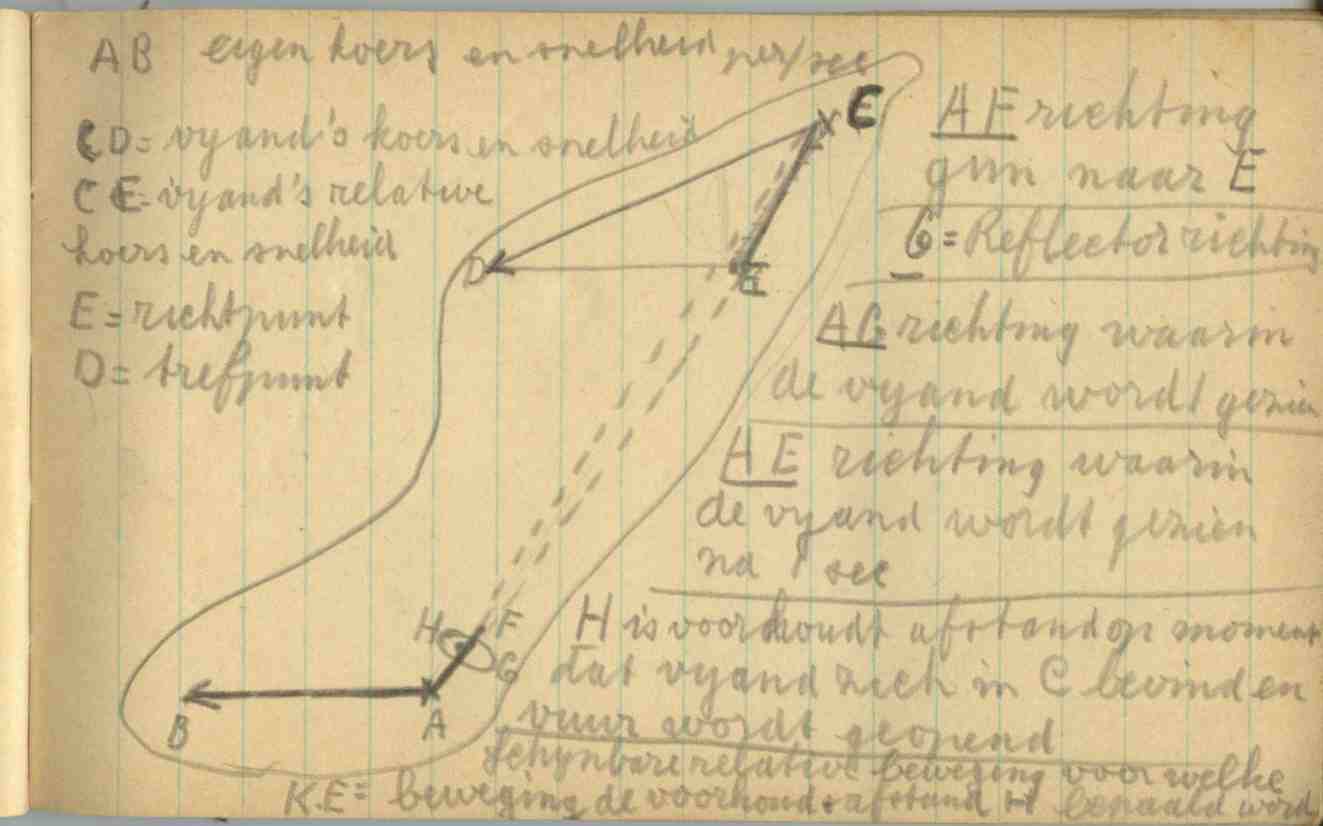 AB eigen koers en snelheid per/sec
CD= vyand's koers en snelheid
CE= vyand's relative
koers en snelheid
E = richtpunt
D = trefpunt
C
D
E
H
F
G
B
A
AF richting
gun naar E
G = Reflector richting
AG richting waarin
de vyand wordt gezien
HE richting waarin
de vyand wordt gezien
na 1 sec
H is voorhoudt afstand op moment
dat vyand zich in C bevind en
vuur wordt geopend
Schynbare relative beweging voor welke
K.E = beweging de voorhouds afstand H bepaald word